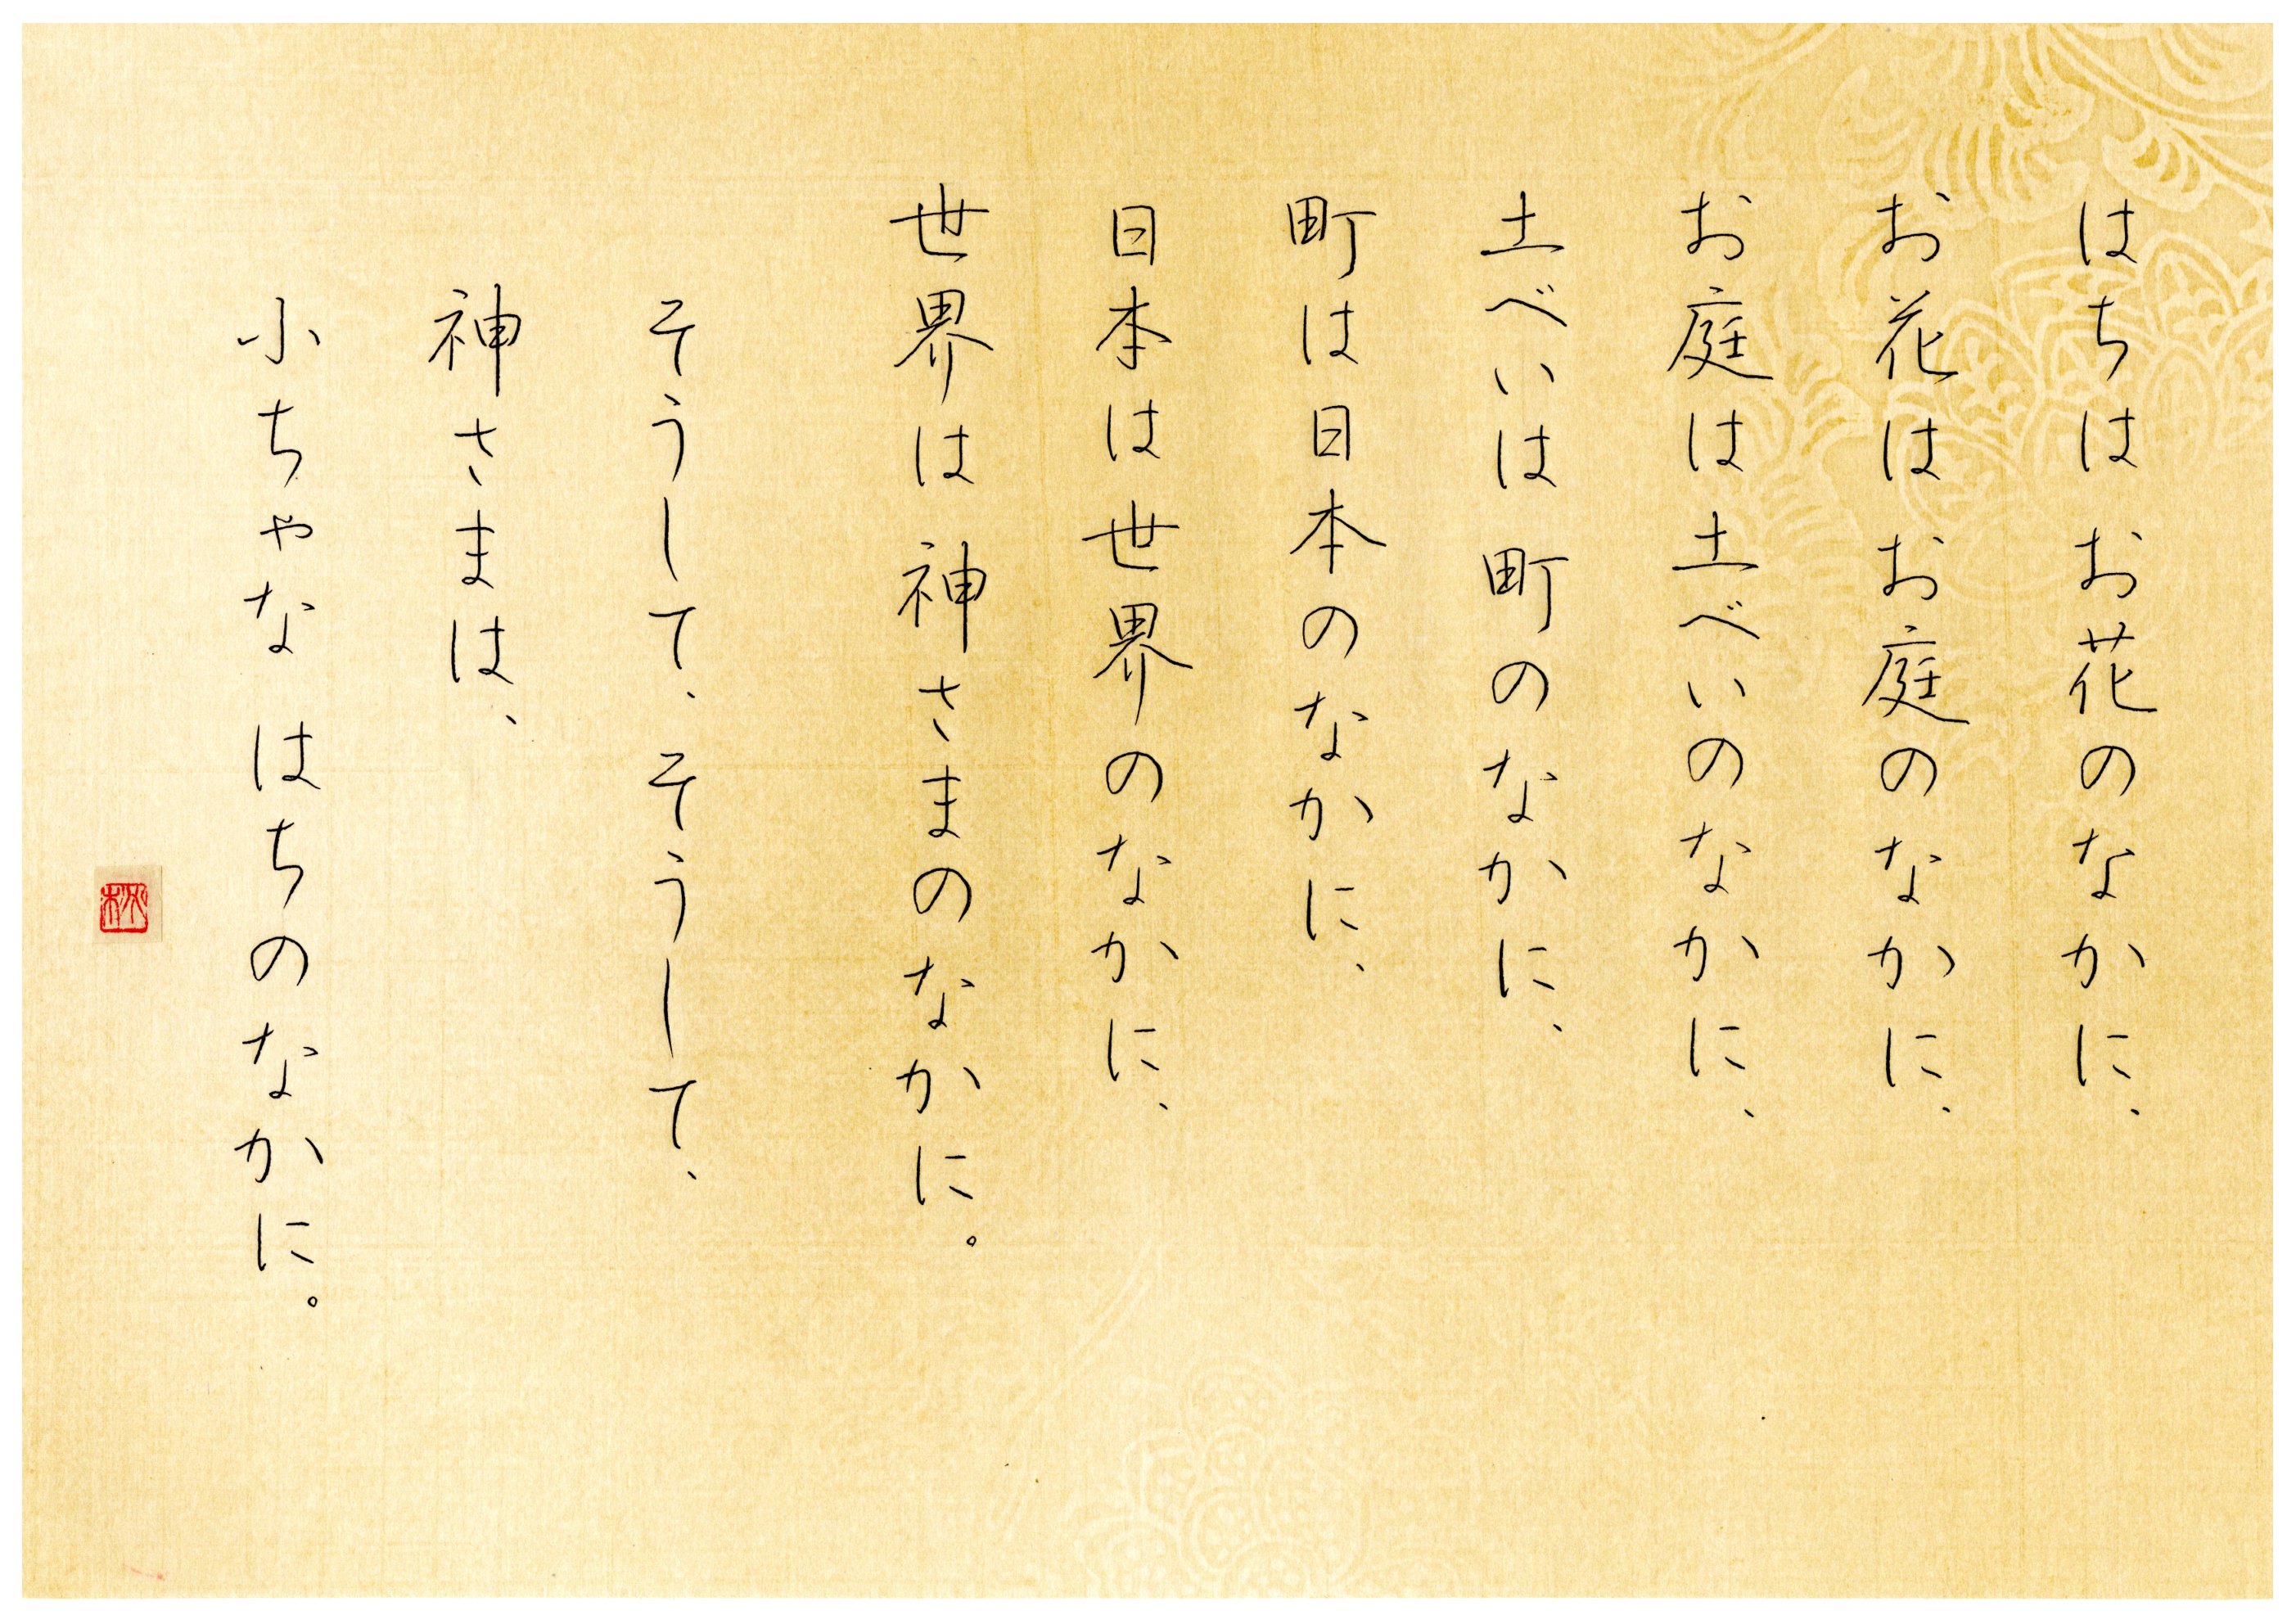 はちはお花のなかに、
お花はお庭のなかに、
お庭は土べいのなかに、
土べいは町のなかに、
町は日本のなかに、
日本は世界のなかに、
世界は神さまのなかに。
そうして、そうして、
神さまは、
小ちゃなはちのなかに。